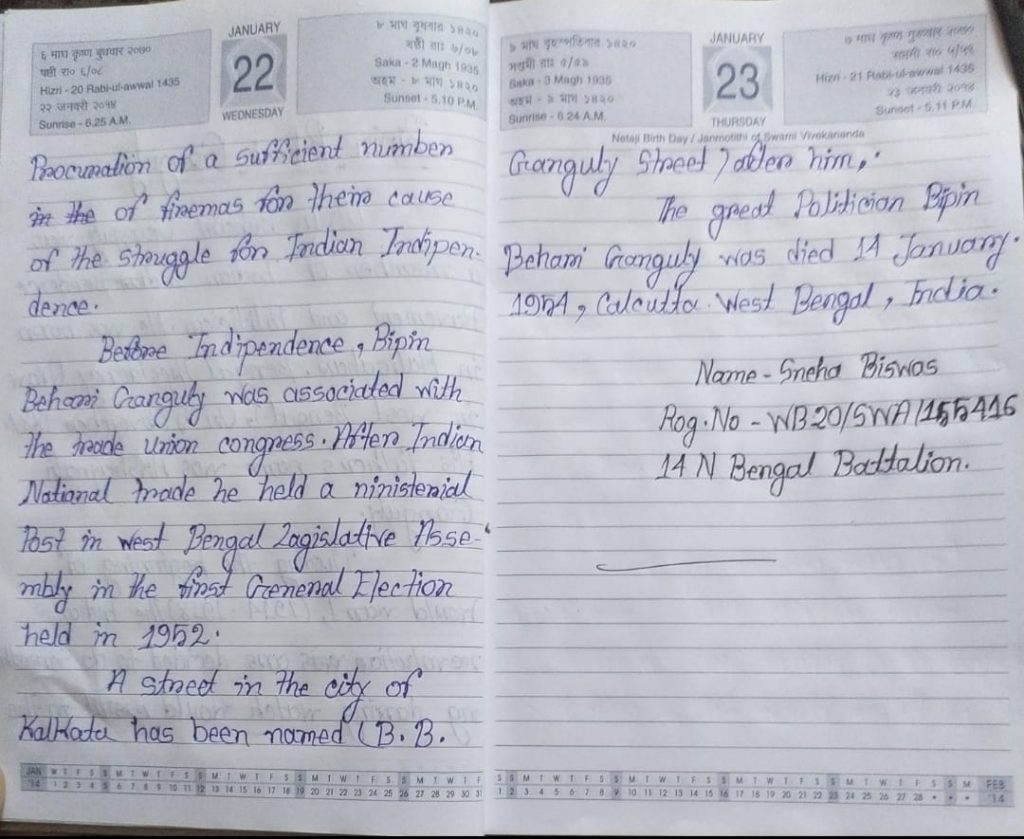 ६ माघ कृष्ण बुधवार २०७०
षष्ठी रा० ६/०८
Hizri - 20 Rabi-ul-awwal 1435
२२ जनवरी २०१४
Sunrise - 6.25 A.M.
JANUARY
22
WEDNESDAY
৮ মাঘ বুধবার ১৪২০
ষষ্ঠী রাঃ ৬/০৮
Saka - 2 Magh 1935
অহম - ৮ মাঘ ১৪২০
Sunset - 5.10 P.M.
Procumation of a sufficient number
in the of firemas for their cause
of the struggle for Indian Indipen-
dence.
Before Indipendence, Bipin
Behari Ganguly was associated with
the trade union congress. After Indian
National trade he held a ninisterial
Post in west Bengal Lagislative Asse-
mbly in the first General Election
held in 1952.
A street in the city of
Kalkata has been named (B. B.
JAN W T F S S M T W T F S S M T W T F S S M T W T F S S M T W T F
'14 1 2 3 4 5 6 7 8 9 10 11 12 13 14 15 16 17 18 19 20 21 22 23 24 25 26 27 28 29 30 31
৯ মাঘ বৃহস্পতিবার ১৪২০
Saka - 3 Magh 1935
অহম - ৯ মাঘ ১৪২০
Sunrise - 6.24 A.M.
JANUARY
23
THURSDAY
७ माघ कृष्ण गुरुवार २०७०
Hizri - 21 Rabi-ul-awwal 1435
२३ जनवरी २०१४
Sunset - 5.11 P.M.
Netaji Birth Day / Janmotithi of Swami Vivekananda
Ganguly Street) after him,.
The great Politician Bipin
Behari Ganguly was died 14 January.
1954, Calcutta. West Bengal, India.
Name - Sneha Biswas
Rog. No - WB20/SWA/155416
14 N Bengal Battalion.
S S M T W T F S S M T W T F S S M T W T F S S M T W T F S S M FEB
1 2 3 4 5 6 7 8 9 10 11 12 13 14 15 16 17 18 19 20 21 22 23 24 25 26 27 28 • • • '14